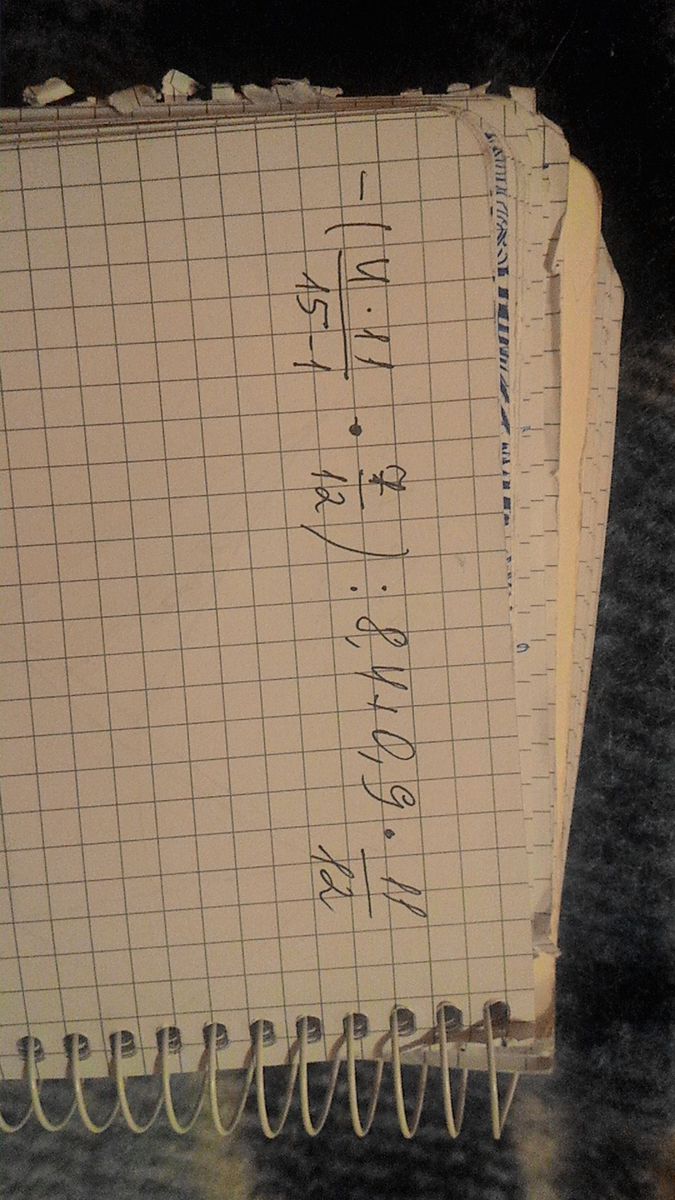 -( 4 · 11 / 15 - 1 · 7 / 12 ) : 8,4 + 0,9 · 11 / 12